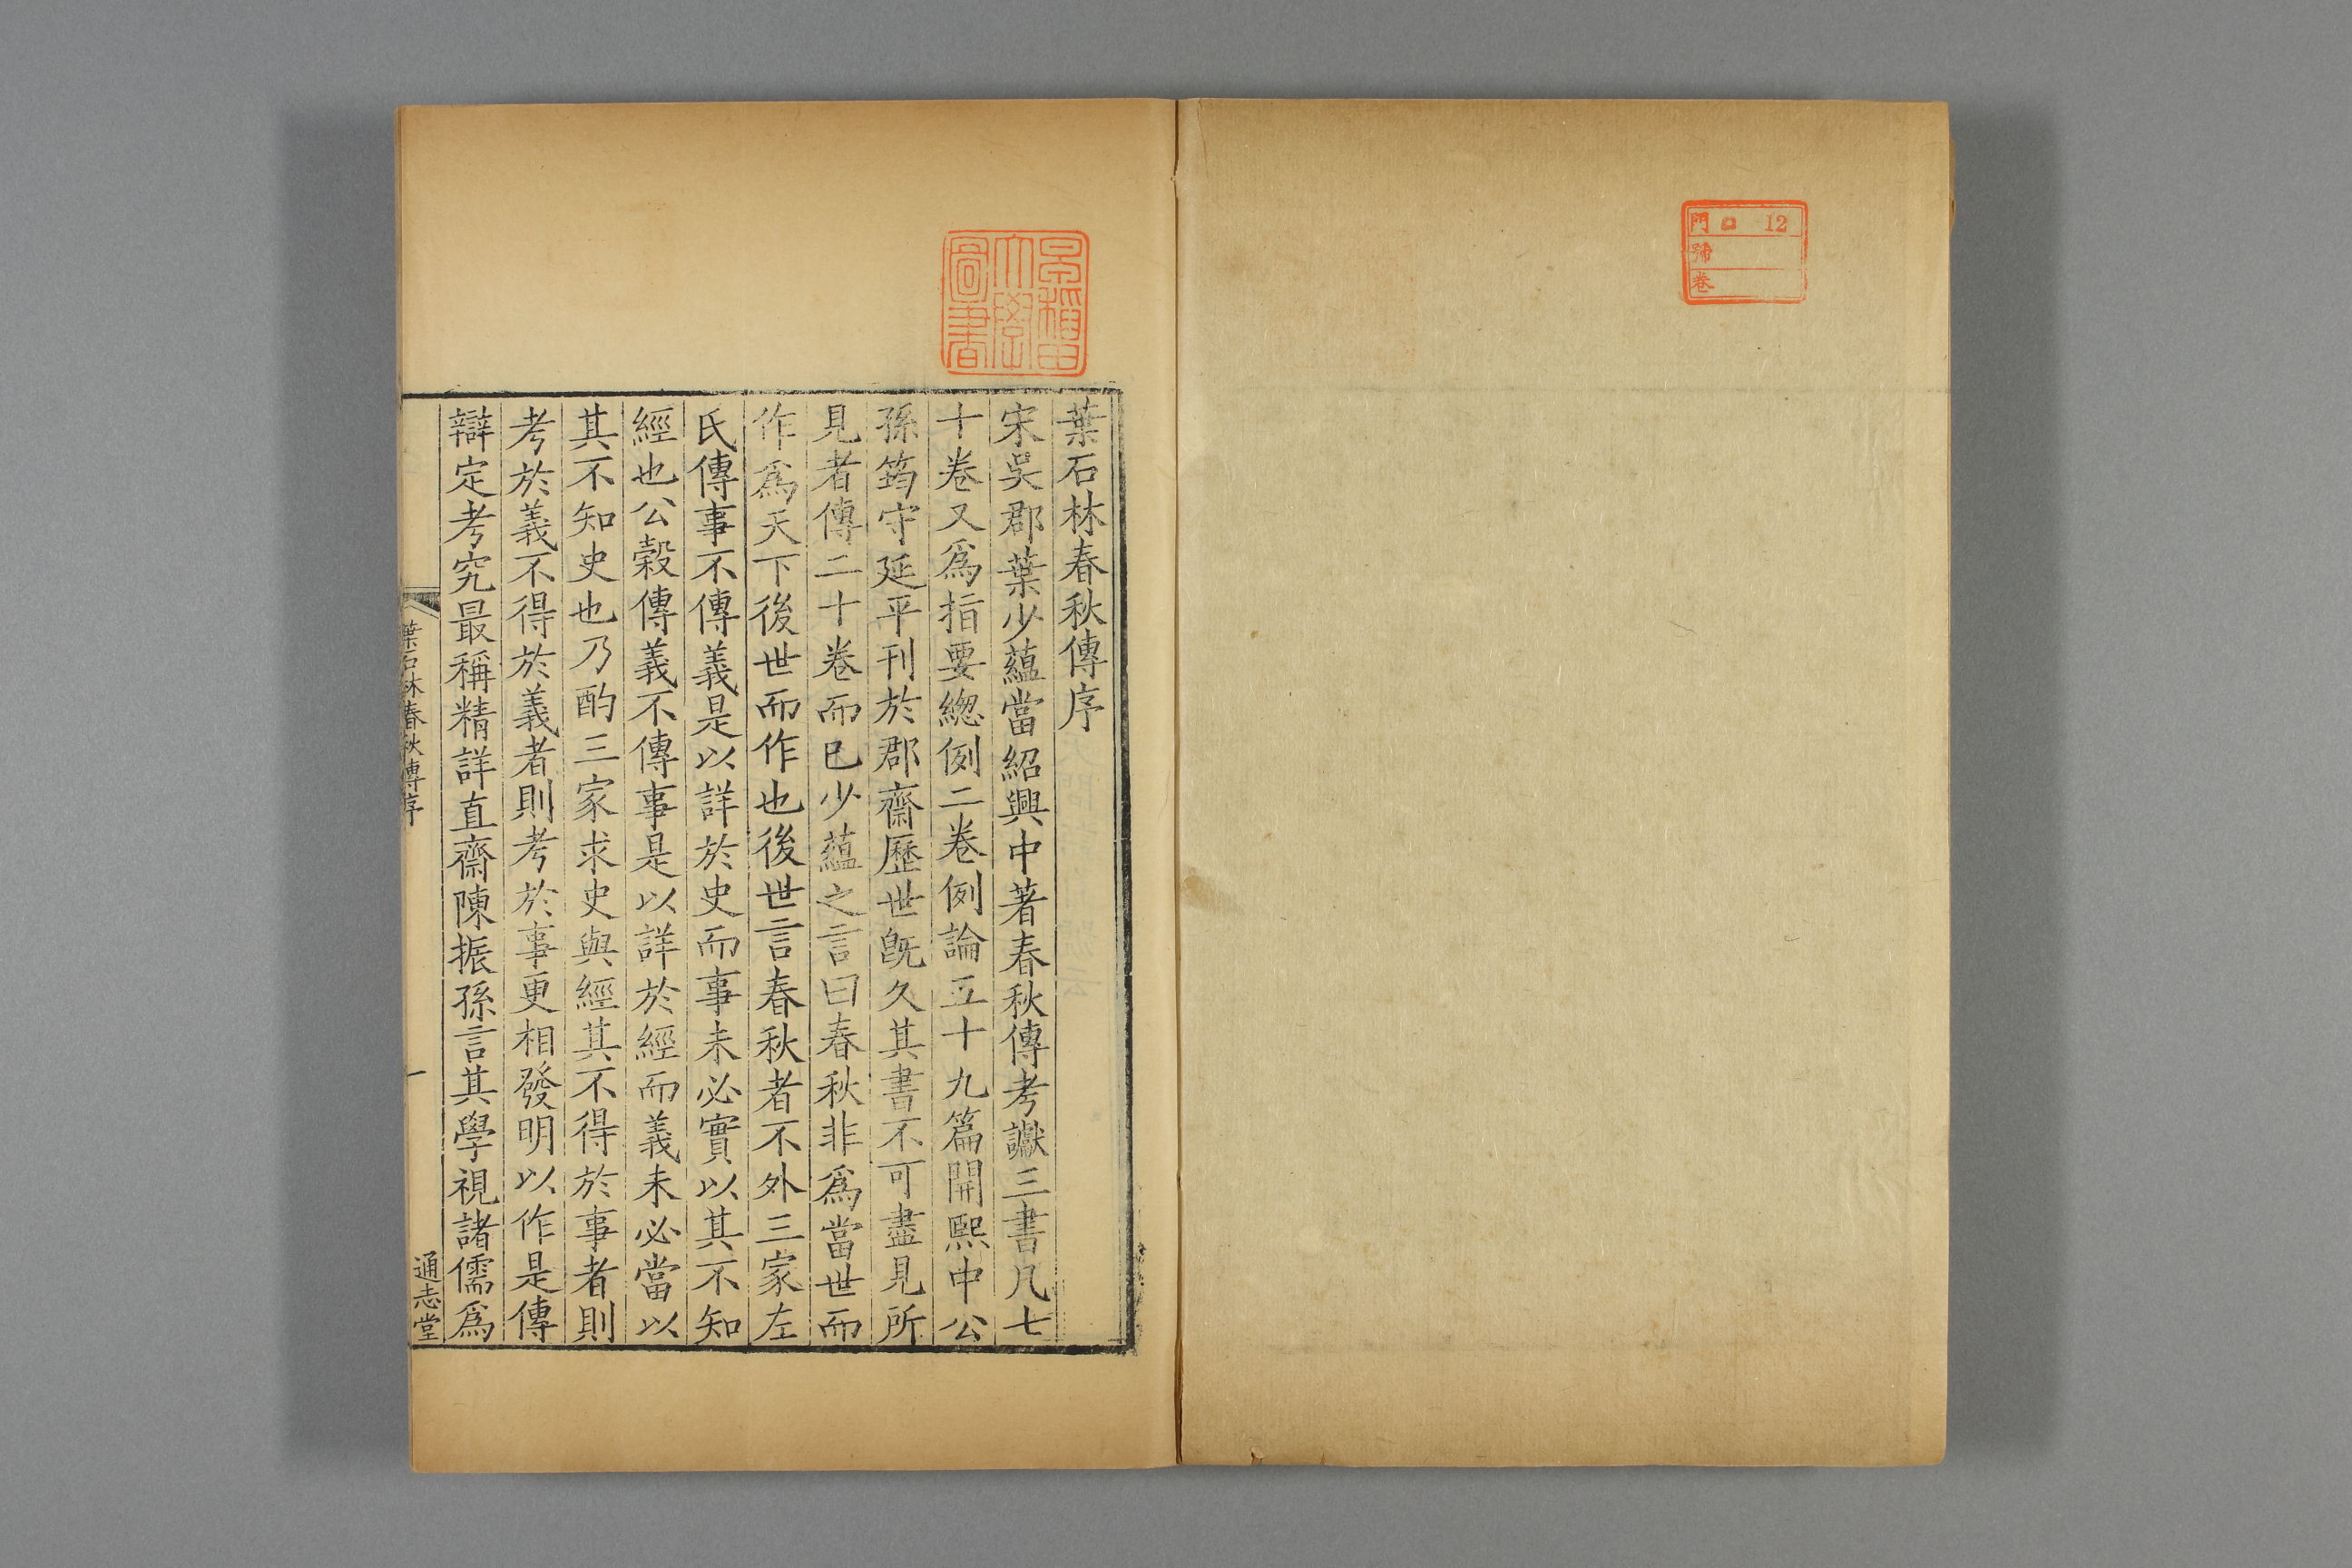 門 ロ 12
號
卷
早稻田
大學
圖書
葉石林春秋傳序
宋吳郡葉少蘊當紹興中著春秋傳考讞三書凡七
十卷又爲指要緫例二卷例論五十九篇開熙中公
孫筠守延平刊於郡齋歷世旣久其書不可盡見所
見者傳二十卷而已少蘊之言曰春秋非爲當世而
作爲天下後世而作也後世言春秋者不外三家左
氏傳事不傳義是以詳於史而事未必實以其不知
經也公榖傳義不傳事是以詳於經而義未必當以
其不知史也乃酌三家求史與經其不得於事者則
考於義不得於義者則考於事更相發明以作是傳
辯定考究最稱精詳直齋陳振孫言其學視諸儒爲
葉石林春秋傳序
一
通志堂